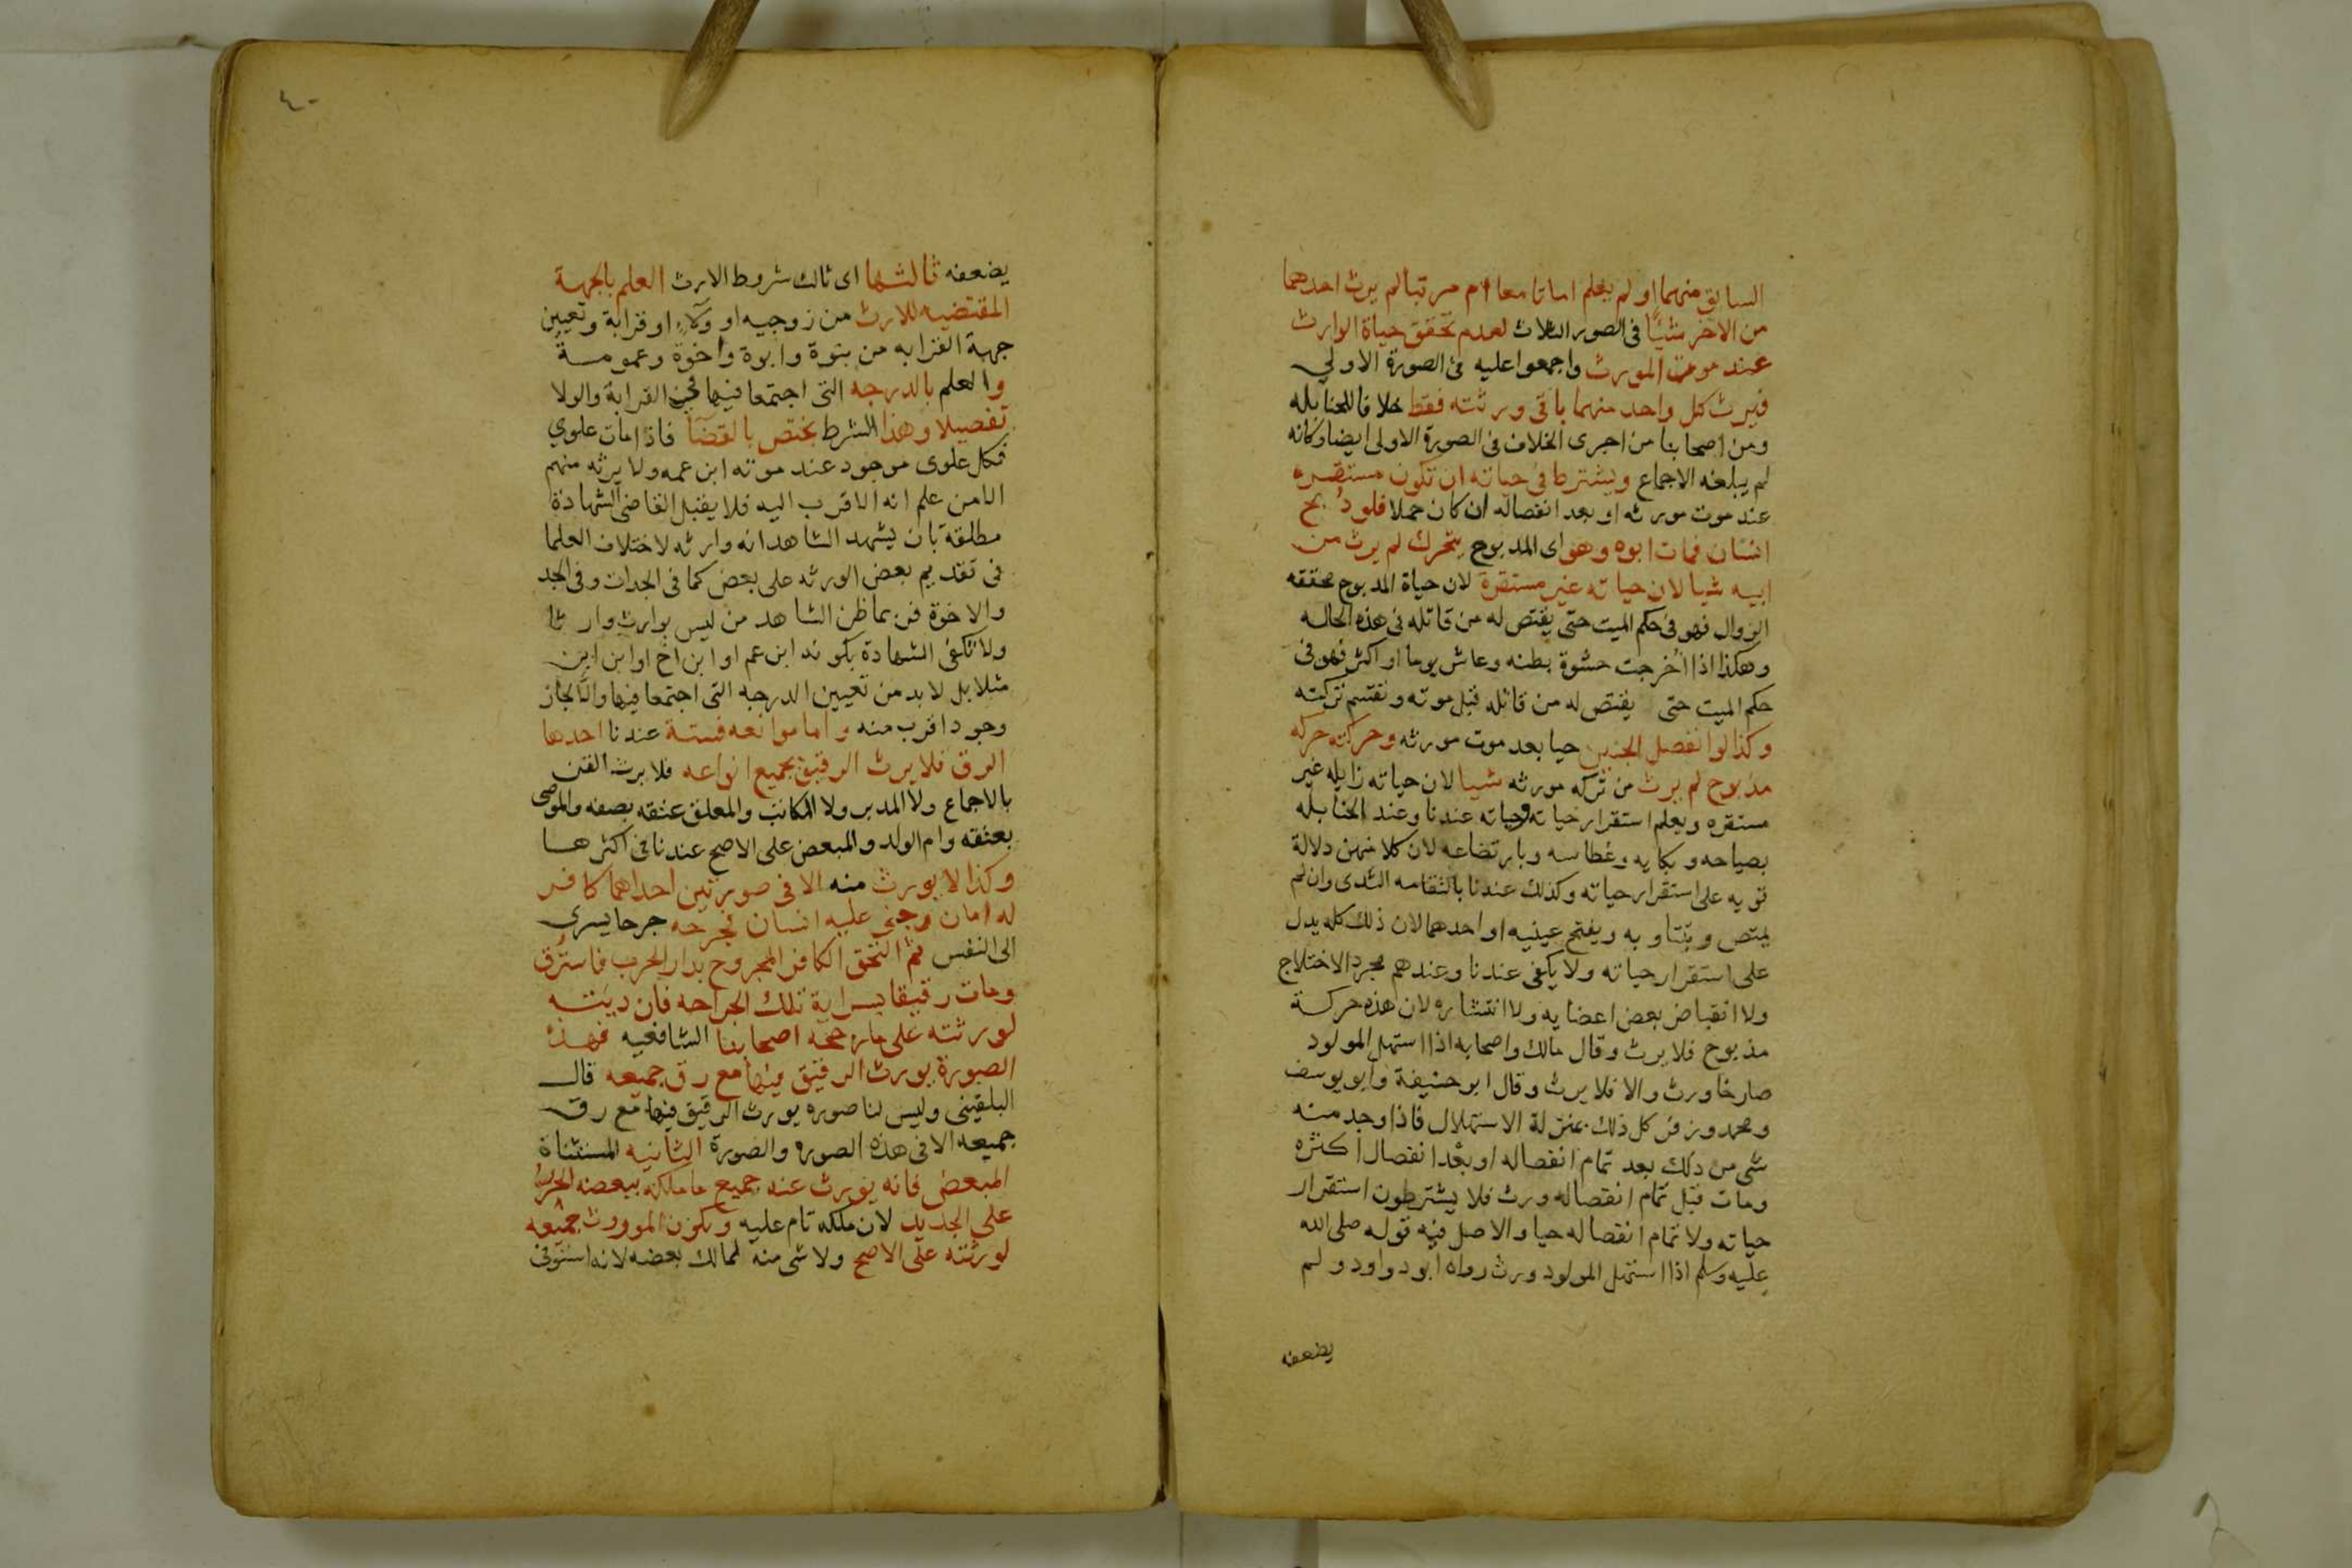 السابق منهما او لم يعلم اماتا معا ام مرتبا لم يرث احدهما
من الاخر شيًا فى الصور الثلاث لعدم تحقق حياة الوارث
عند موت المورث واجمعوا عليه فى الصورة الاولي
فيرث كل واحد منهما باقى ورثته فقط خلافا للحنابله
ومن اصحابنا من اجرى الخلاف فى الصورة الاولى ايضا وكانه
لم يبلغه الاجماع ويشترط فى حياته ان تكون مستقره
عند موت مورثه او بعد انفصاله ان كان حملا فلو ذُبح
انسان فمات ابوه وهو اى المذبوح يتحرك لم يرث من
ابيه شيا لان حياته غير مستقرة لان حياة المذبوح محققه
الزوال فهو فى حكم الميت حتى يقتص له من قاتله فى هذه الحاله
وهكذا اذا اُخرجت حشوة بطنه وعاش يوما او اكثر فهو فى
حكم الميت حتى يقتص له من قاتله قبل موته وتقسم تركته
وكذا لو انفصل الجنين حيا بعد موت مورثه وحركته حركه
مذبوح لم يرث من تركه مورثه شيا لان حياته زايله غير
مستقره ويعلم استقرار حياته وحياته عندنا وعند الحنابله
بصياحه وبكايه وعطاسه وبارتضاعه لان كلا منهن دلالة
قويه على استقرار حياته وكذلك عندنا بالتقامه الثدى وان لم
يمتص وبتثاوبه وبفتح عينيه او احدهما لان ذلك كله يدل
على استقرار حياته ولا يكفى عندنا وعندهم مجرد الاختلاج
ولا انقباض بعض اعضايه ولا انتشاره لان هذه حركة
مذبوح فلا يرث وقال مالك واصحابه اذا استهل المولود
صارخا ورث والا فلا يرث وقال ابو حنيفة وابو يوسف
ومحمد وزفر كل ذلك بمنزلة الاستهلال فاذا وجد منه
شى من ذلك بعد تمام انفصاله او بعد انفصال اكثره
ومات قبل تمام انفصاله ورث فلا يشترطون استقرار
حياته ولا تمام انفصاله حيا والاصل فيه قوله صلى الله
عليه وسلم اذا استهل المولود ورث رواه ابو داود ولم
يضعفه
٤٠
يضعفه ثالثها اى ثالث شروط الارث العلم بالجهة
المقتضيه للارث من زوجيه او ولاءٍ او قرابة وتعيين
جهة القرابه من بنوة وابوة واخوة وعمومة
والعلم بالدرجه التى اجتمعا فيها فى القرابة والولا
تفصيلا وهذا الشرط يختص بالقضا فاذا مات علوي
فكل علوى موجود عند موته ابن عمه ولا يرثه منهم
الا من علم انه الاقرب اليه فلا يقبل القاضى الشهادة
مطلقة بان يشهد الشاهد انه وارثه لاختلاف العلما
فى تقديم بعض الورثه على بعض كما فى الجدات وفى الجد
والاخوة فربما ظن الشاهد من ليس بوارث وارثا
ولا تكفى الشهادة بكونه ابن عم او ابن اخ او ابن ابن
مثلا بل لا بد من تعيين الدرجه التى اجتمعا فيها والا لجاز
وجود اقرب منه واما موانعه فستة عندنا احدها
الرق فلا يرث الرقيق بجميع انواعه فلا يرث القن
بالاجماع ولا المدبر ولا المكاتب والمعلق عتقه بصفه والموصى
بعتقه وام الولد والمبعض على الاصح عندنا فى اكثرها
وكذا لا يورث منه الا فى صورتين احداهما كافر
له امان وجنى عليه انسان فجرحه جرحا يسرى
الى النفس ثم التحق الكافر المجروح بدار الحرب فاسترُق
ومات رقيقا بسراية تلك الجراحه فان ديته
لورثته على ما رجحه اصحابنا الشافعيه فهذه
الصورة يورث الرقيق فيها مع رق جميعه قال
البلقينى وليس لنا صوره يورث الرقيق فيها مع رق
جميعه الا فى هذه الصوره والصورة الثانيه المستثناة
المبعض فانه يورث عنه جميع ما ملكه ببعضه الحر
على الجديد لان ملكه تام عليه ويكون الموروث جميعه
لورثته على الاصح ولا شى منه لمالك بعضه لانه استوفى